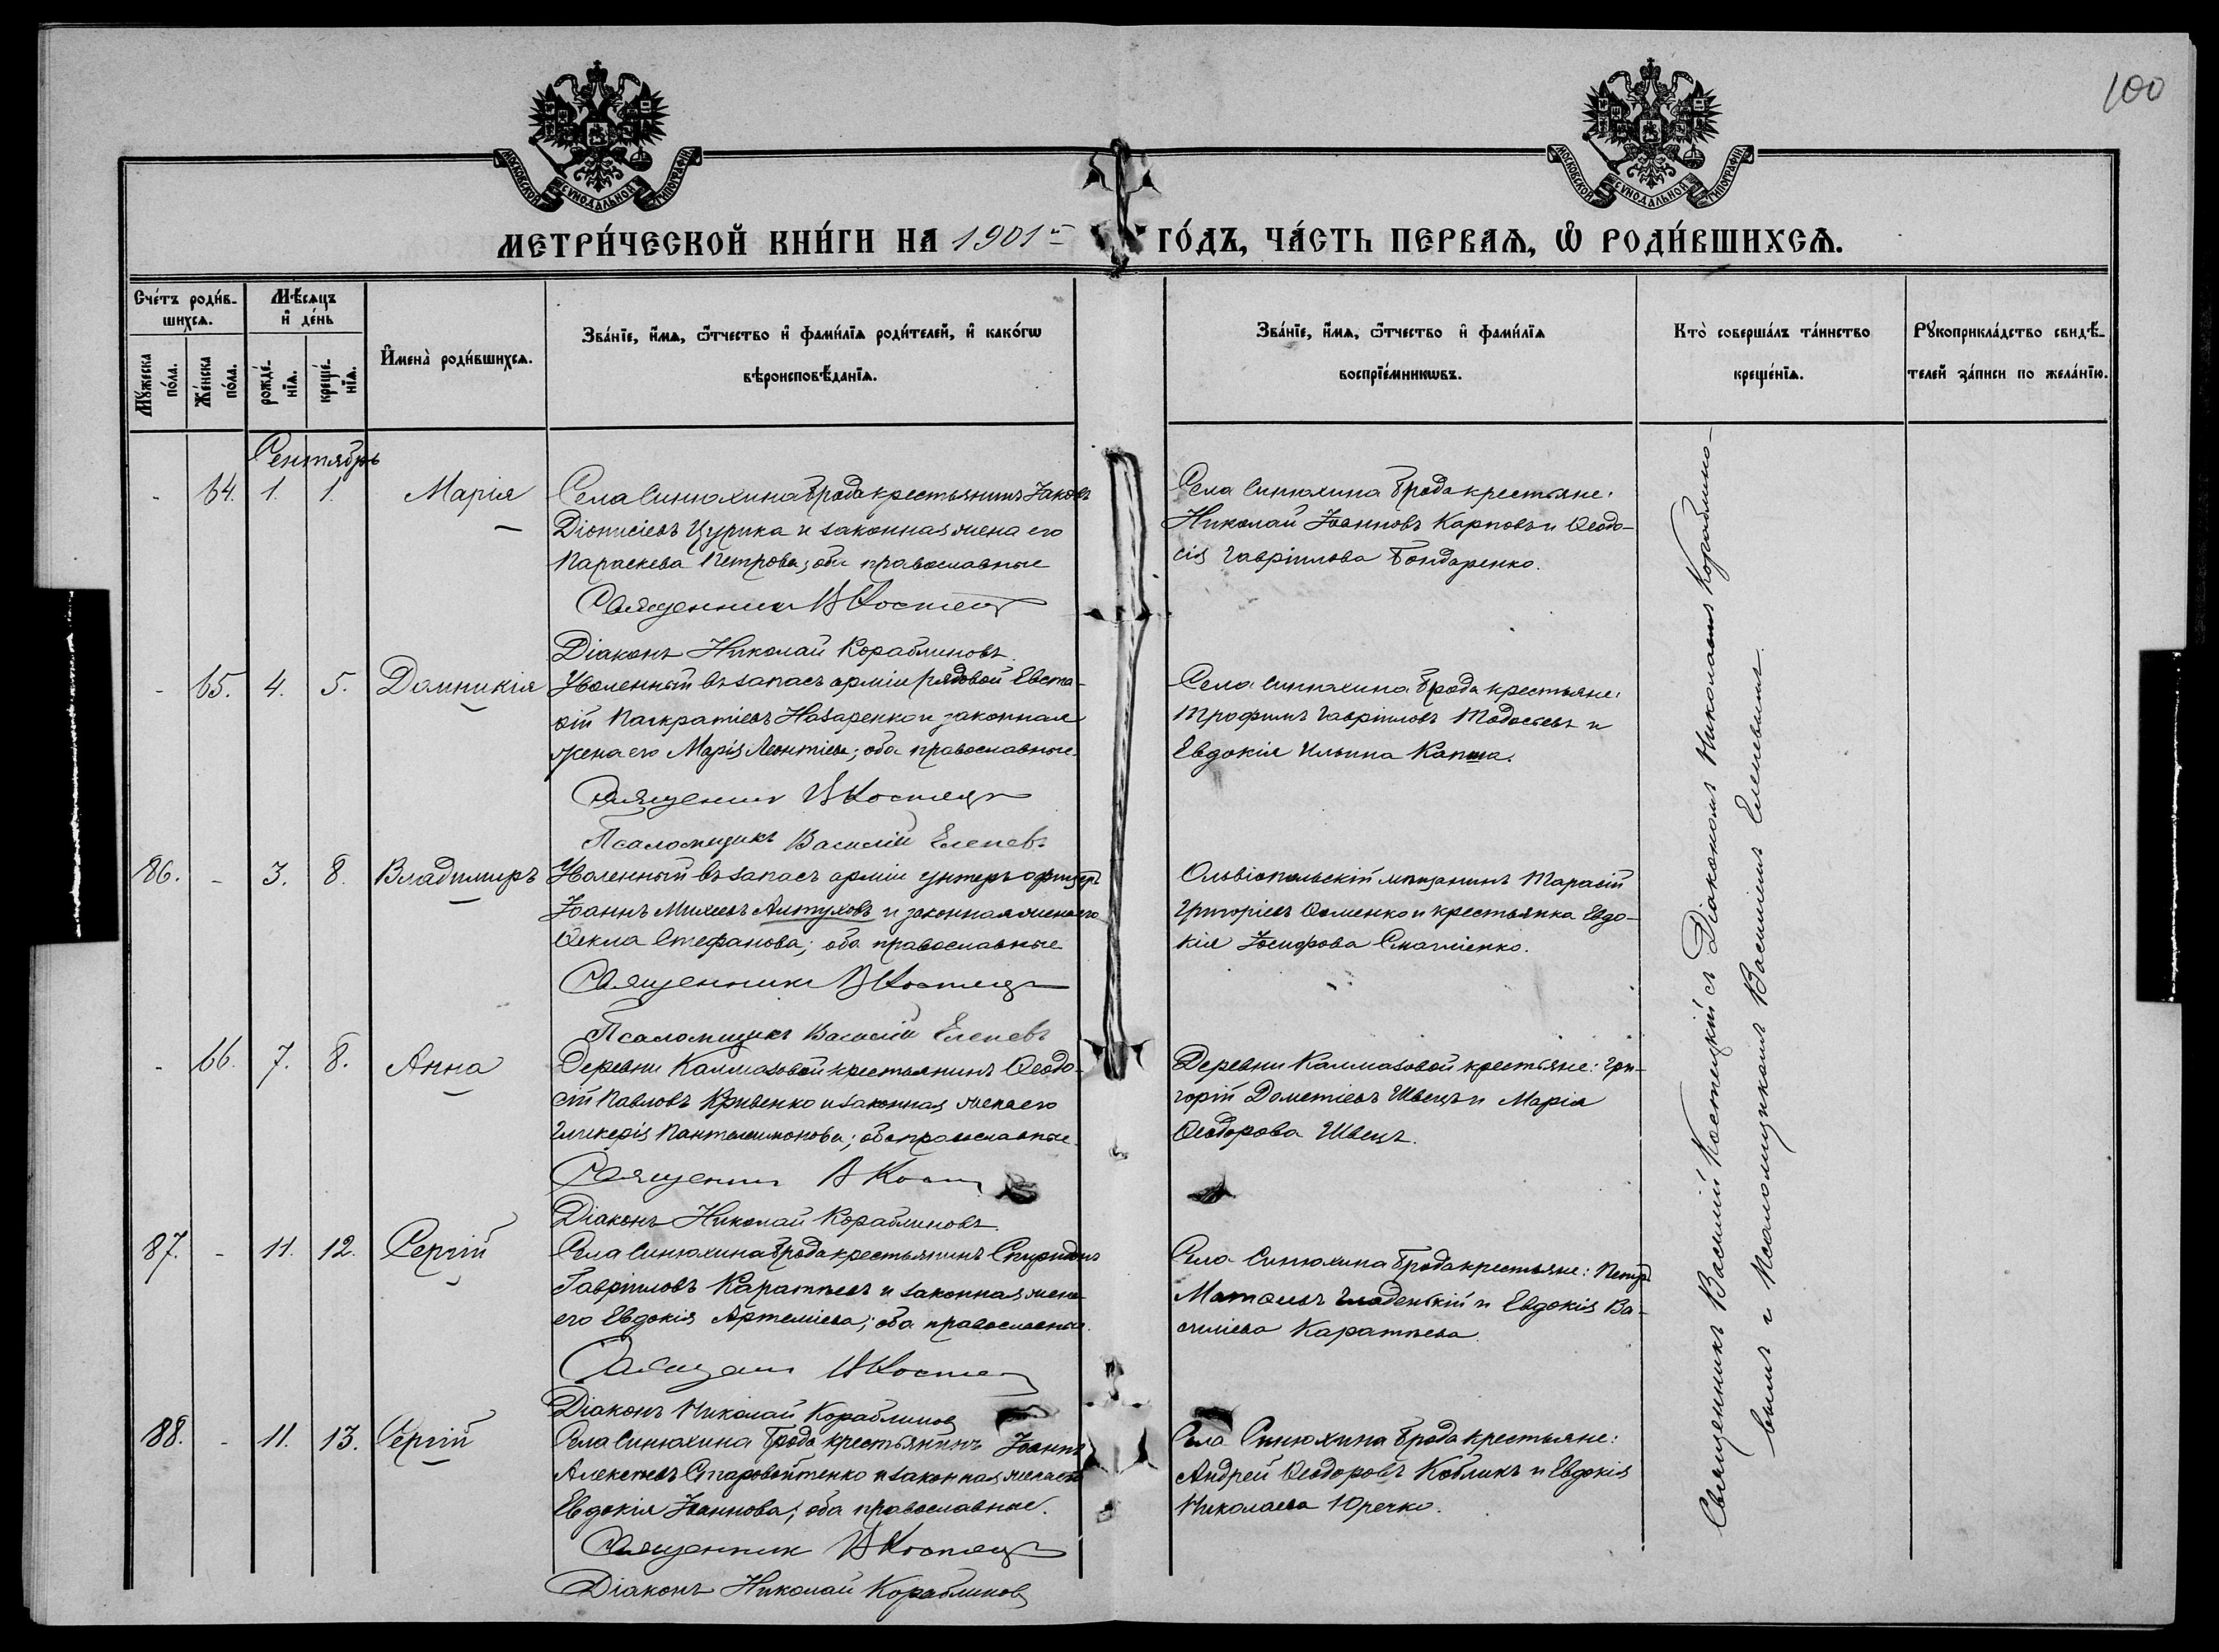 100
МОСКОВСКОЙ СѴНОДАЛЬНОЙ ТИПОГРАФІИ.
МОСКОВСКОЙ СѴНОДАЛЬНОЙ ТИПОГРАФІИ.
МЕТРИ́ЧЕСКОЙ КНИ́ГИ НА 1901й ГО́ДЪ, ЧА́СТЬ ПЕРВАѦ, Ѡ РОДИ́ВШИХСѦ.
Сче́тъ роди́в-
шихсѧ.
Мѣ́сѧцъ
и҆ де́нь
Мꙋ́жеска
по́ла.
Же́нска
по́ла.
рожде́-
нїѧ.
креще́-
нїѧ.
И҆мена̀ роди́вшихсѧ.
Зва́нїе, и҆́мѧ, ѻ҆́тчество и҆ фами́лїѧ роди́телей, и҆ како́гѡ
вѣроисповѣ́данїѧ.
Зва́нїе, и҆́мѧ, ѻ҆́тчество и҆ фами́лїѧ
воспрїе́мникѡвъ.
Кто̀ соверша́лъ та́инство
креще́нїѧ.
Рꙋкоприкла́дство свидѣ́-
телей за́писи по жела́нїю.
Сентябрь
- 64. 1. 1. Марія
Села Синюхина Брода крестьянинъ Іаковъ
Діонисіевъ Цурика и законная жена его
Параскева Петрова; оба православные
Священникъ В Костец
Діаконъ Николай Кораблиновъ
Села Синюхина Брода крестьяне:
Николай Іоанновъ Карповъ и Ѳеодо-
сія Гавріилова Бондаренко.
- 65. 4. 5. Домникія
Уволенный въ запасъ арміи рядовой Евста-
фій Панкратіевъ Назаренко и законная
жена его Марія Леонтіева; оба православные.
Священникъ В Костец
Псаломщикъ Василій Еленевъ
Села Синюхина Брода крестьяне:
Трофимъ Гавріиловъ Тодосьевъ и
Евдокія Ильина Капша.
86. - 3. 8. Владимиръ
Уволенный въ запасъ арміи унтеръ-офицеръ
Іоаннъ Михеевъ Алтуховъ и законная жена его
Ѳекла Стефанова; оба православные
Священникъ В Костец
Псаломщикъ Василій Еленевъ
Ольвіопольскій мѣщанинъ Тарасій
Григоріевъ и крестьянка Евдо-
кія Іосифова
- 66. 7. 8. Анна
Деревни Калмазовой крестьянинъ Ѳеодо-
сій Павловъ Кривенко и законная жена его
Гликерія Пантелеимонова; оба православные.
Священникъ В Кост
Діаконъ Николай Кораблиновъ
Деревни Калмазовой крестьяне: Гри-
горій Дометіевъ Швецъ и Марія
Ѳеодорова Швецъ.
87. - 11. 12. Сергій
Села Синюхина Брода крестьянинъ Спиридонъ
Гавріиловъ Каратѣевъ и законная жена
его Евдокія Артеміева; оба православные.
Священникъ В Костец
Діаконъ Николай Кораблиновъ
Села Синюхина Брода крестьяне: Петръ
Матѳеевъ Гладенькій и Евдокія Ва-
силіева Каратѣева
88. - 11. 13. Сергій
Села Синюхина Брода крестьянинъ Іоаннъ
Алексѣевъ Старовойтенко и законная жена его
Евдокія Іоаннова; оба православные.
Священникъ В Костец
Діаконъ Николай Кораблиновъ
Села Синюхина Брода крестьяне:
Андрей Ѳеодоровъ Кобликъ и Евдокія
Николаева Юречко.
Священникъ Василій Костецкій съ Діакономъ Николаемъ Кораблино-
вымъ и Псаломщикомъ Василіемъ Еленевымъ.